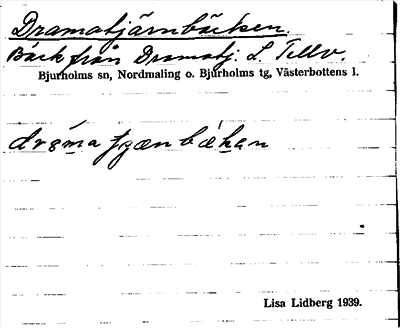 Dramatjärnbäcken.
Bäck från Dramatj. L. Tellv.
Bjurholms sn, Nordmaling o. Bjurholms tg, Västerbottens l.
Lisa Lidberg 1939.